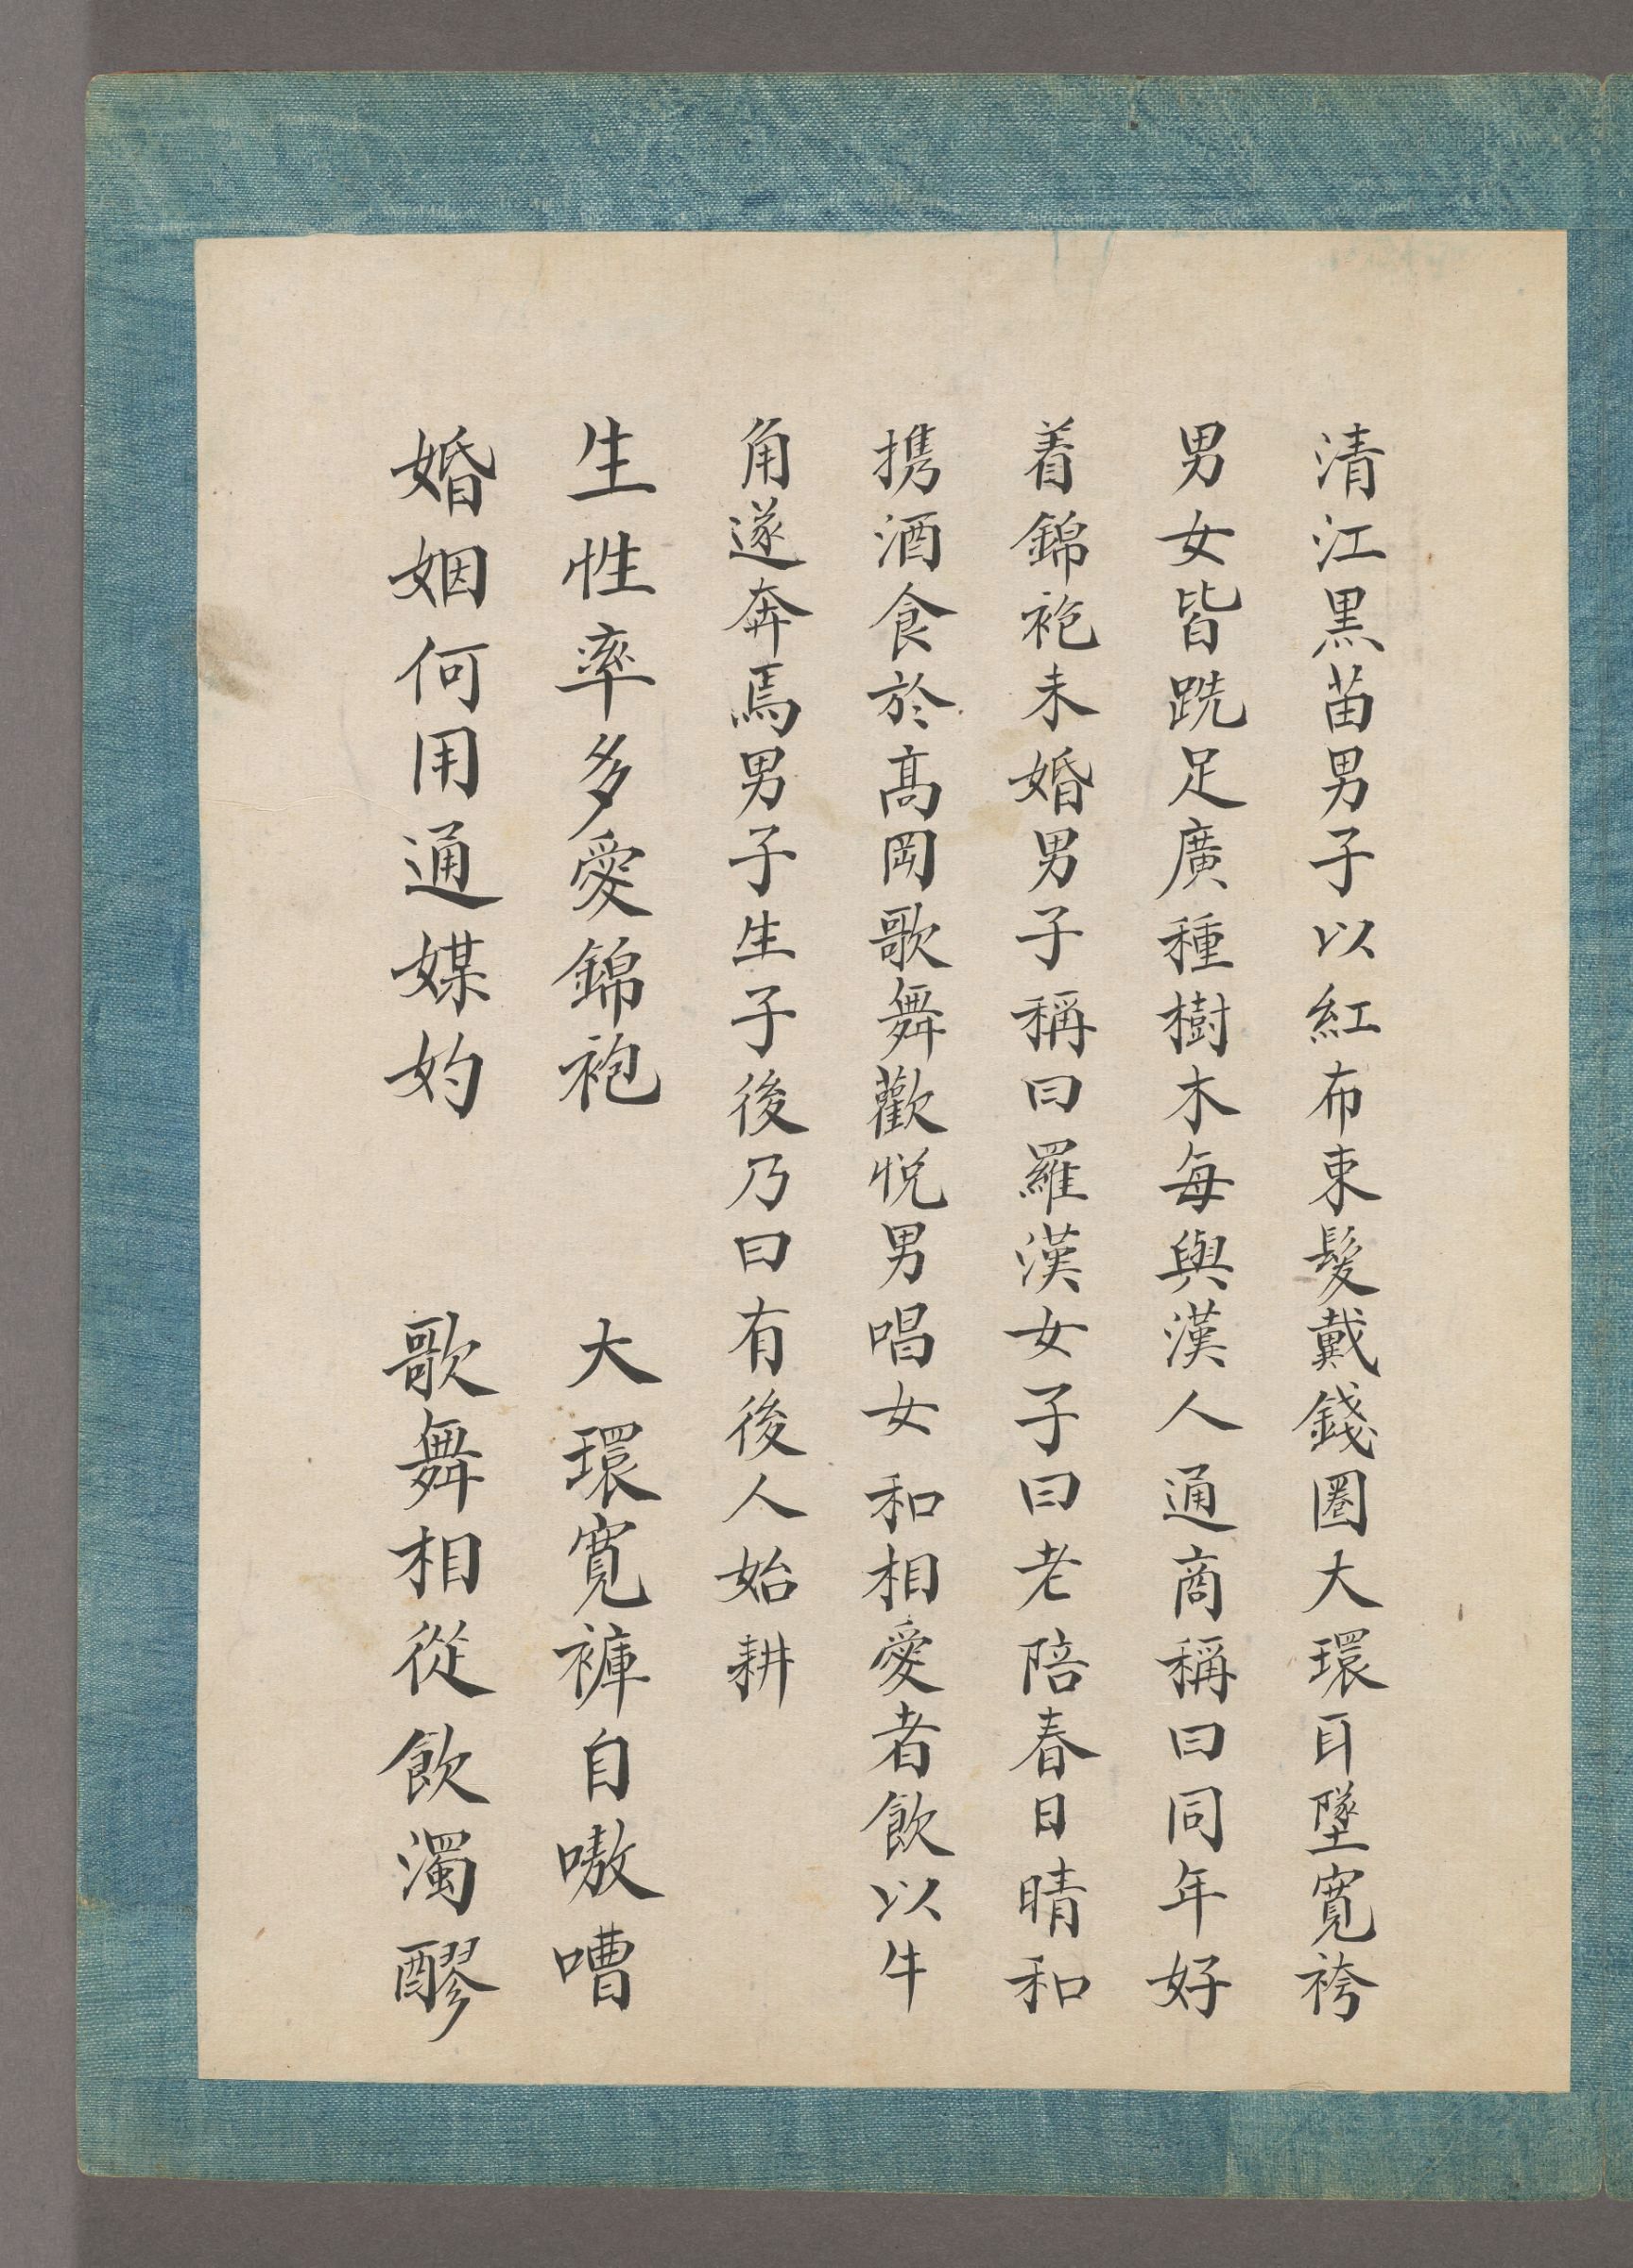 清江黒苗男子以紅布束髮戴錢圈大環耳墜寬袴
男女皆跣足廣種樹木每與漢人通商稱曰同年好
着錦袍未婚男子稱曰羅漢女子曰老陪春日晴和
携酒食於髙岡歌舞歡悅男唱女和相愛者飲以牛
角遂奔焉男子生子後乃曰有後人始耕
生性率多愛錦袍　大環寬褲自嗷嘈
婚姻何用通媒妁　歌舞相從飲濁醪